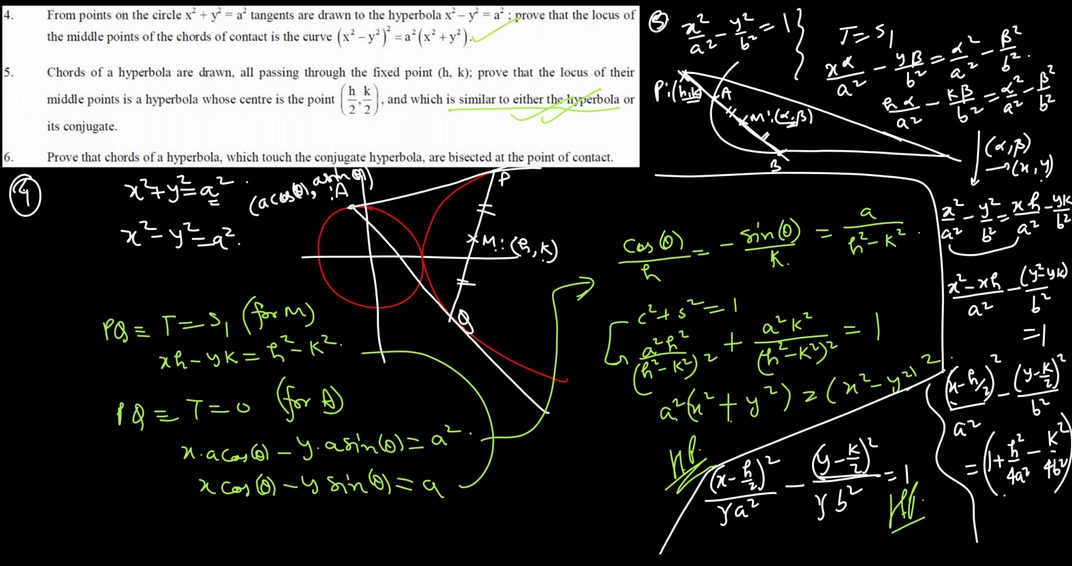 4. From points on the circle x² + y² = a² tangents are drawn to the hyperbola x² – y² = a² ; prove that the locus of
the middle points of the chords of contact is the curve (x² – y²)² = a²(x² + y²).
5. Chords of a hyperbola are drawn, all passing through the fixed point (h, k); prove that the locus of their
middle points is a hyperbola whose centre is the point (h/2, k/2), and which is similar to either the hyperbola or
its conjugate.
6. Prove that chords of a hyperbola, which touch the conjugate hyperbola, are bisected at the point of contact.
④
x²+y²=a²
x²-y²=a².
(acosθ, asinθ)
:A
P
M:(h,k)
Q
PQ ≡ T=S₁ (for M)
xh-yk=h²-k².
PQ ≡ T=0 (for A)
x.acosθ - y.asinθ = a².
x cosθ - y sinθ = a
cosθ/h = -sinθ/k = a/(h²-k²).
c²+s²=1
a²h²/(h²-k²)² + a²k²/(h²-k²)² = 1
a²(x²+y²) = (x²-y²)²
HP.
⑤ x²/a² - y²/b² = 1
P:(h,k)
A
M:(α,β)
B
T=S₁
xα/a² - yβ/b² = α²/a² - β²/b².
hα/a² - kβ/b² = α²/a² - β²/b²
(α,β)
→(x,y)
x²/a² - y²/b² = xh/a² - yk/b²
(x²-xh)/a² - (y²-yk)/b²
=1
(x-h/2)²/a² - (y-k/2)²/b²
= (1+h²/4a² - k²/4b²)
(x-h/2)²/γa² - (y-k/2)²/γb² = 1
HP.